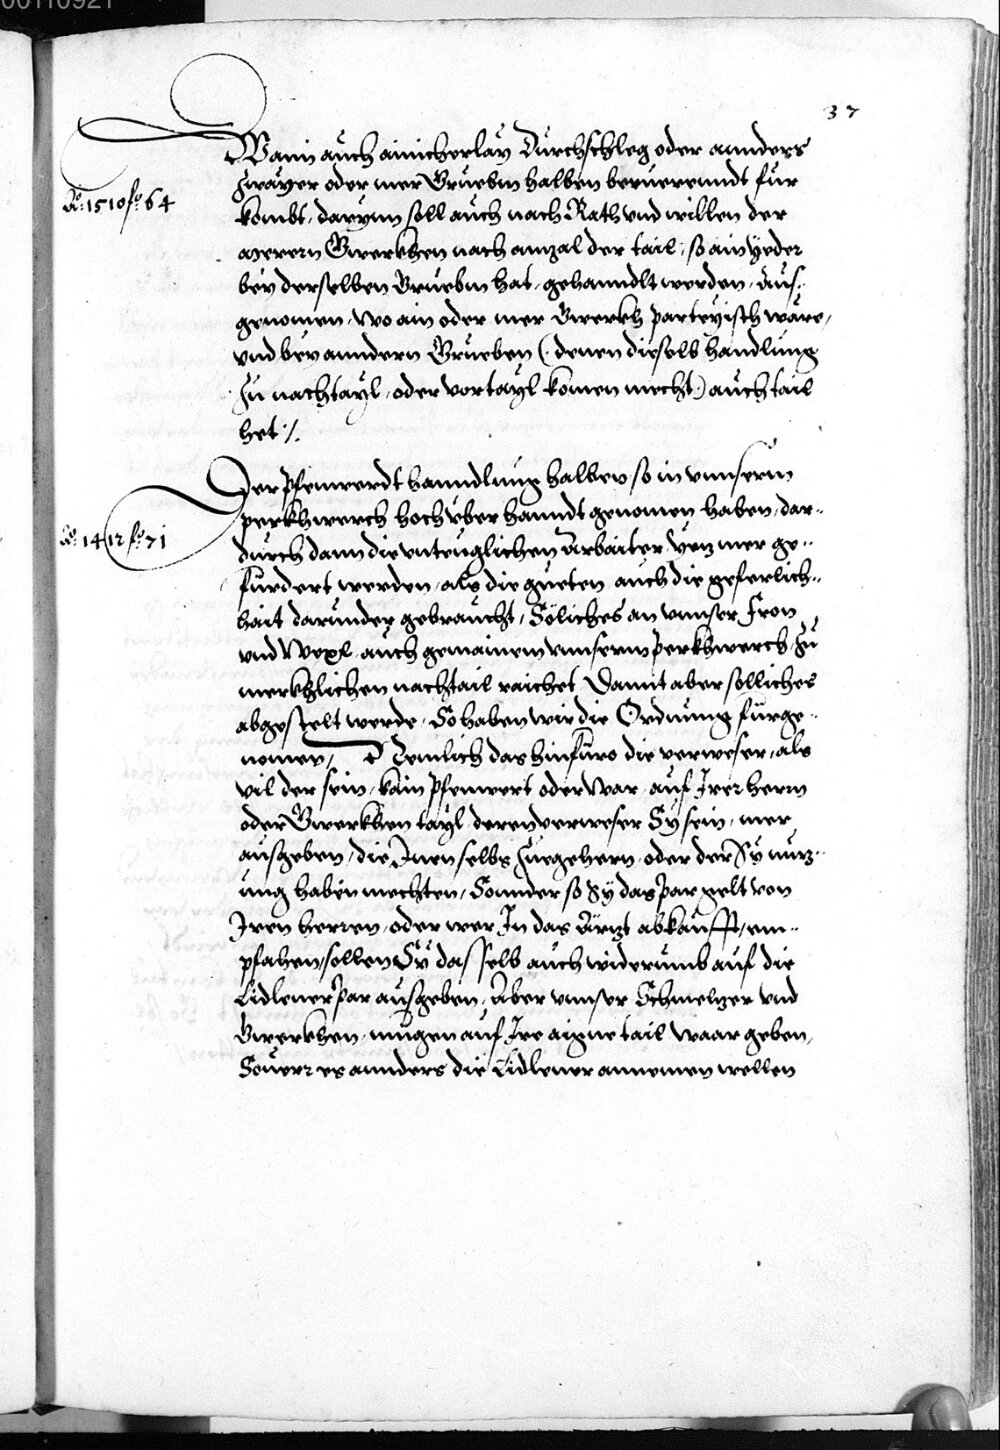 00110921
37
Wann auch ainicherlay Durchschleg oder annders
zwayer oder mer Gruebm halben beruerenndt fur
Ao: 1510 fo: 64
kombt, darynn soll auch nach Rath und willen der
merern Gwerkhen nach anzal der tail, so ain yeder
bey derselben Gruebm hat, gehanndlt werden, Aus-
genomen, Wo ain oder mer Gwerkh parteyisch wäre,
und bey anndern Grueben (: denen dieselb handlung
zu nachtayl, oder vortayl komen mecht :) auch tail
het :/.
Der Pfenwerdt hanndlung halben so in unnserm
perkhwerch hoch über hanndt genomen haben, dar-
Ao: 1412 fo: 71
durch dann die untuglichen Arbaiter, yez mer ge-
furdert werden, als die gueten auch die geferlich-
hait darunder gebraucht, Söliches an unnser Fron
und Wexl, auch gemainem unnserm perkhwerch zu
merkhlichen nachtail raichet Damit aber solliches
abgestelt werde, So haben wir die Ordnung fürge-
nomen, Nemlich das hinfüro die verweser, als
vil der sein, kain Pfenwert oder War, auf Irer herrn
oder Gwerkhen tayl, deren verweser Sy sein, mer
ausgeben, die Inen selbs zuegehern, oder der Sy nuz-
ung haben mechten, Sonnder so Sy das par gelt von
Iren herren, oder wer In das Ärzt abkaufft, em-
pfahen, sollen Sy dasselb auch widerumb auf die
Lidlener par ausgeben, Aber unnser Schmelzer und
Gwerkhen, mugen auf Ire aigne tail waar geben,
Soverr es annders die Lidlener annemen wellen